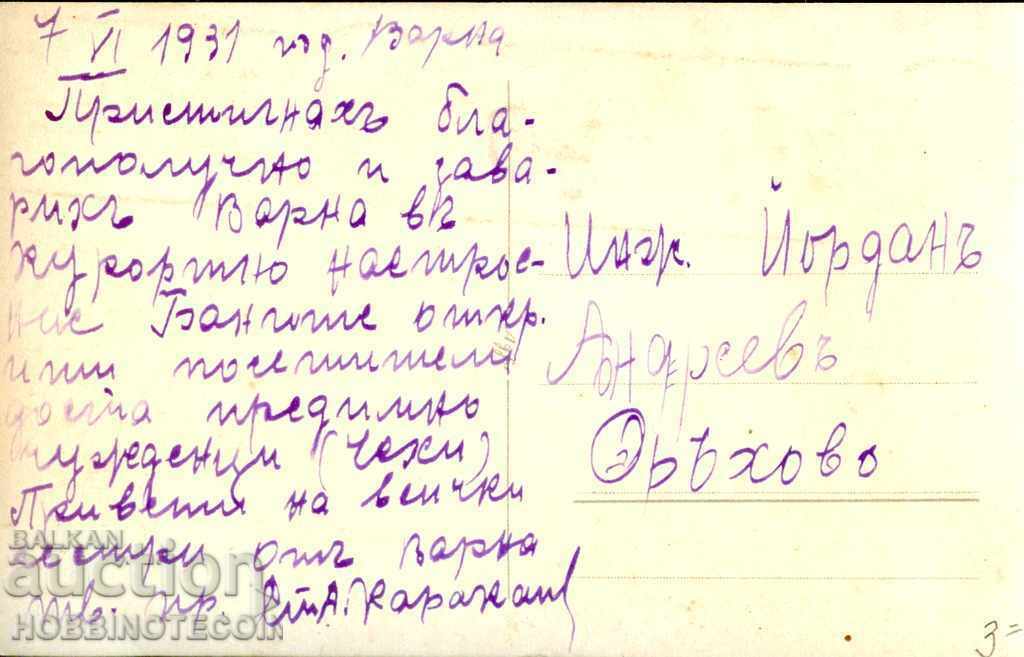 7 VI 1931 год. Варна
Пристигнахъ бла-
гополучно и зава-
рихъ Варна въ
курортно настрое-
ние Баните откр.
ити посетители
доста предимно
чужденци (Чехи)
Привети на всички
отъ Варна
тв. пр.
Инж. Йорданъ
Андреевъ
Оръхово
3=
BALKAN
auction
HOBBINOTECOIN